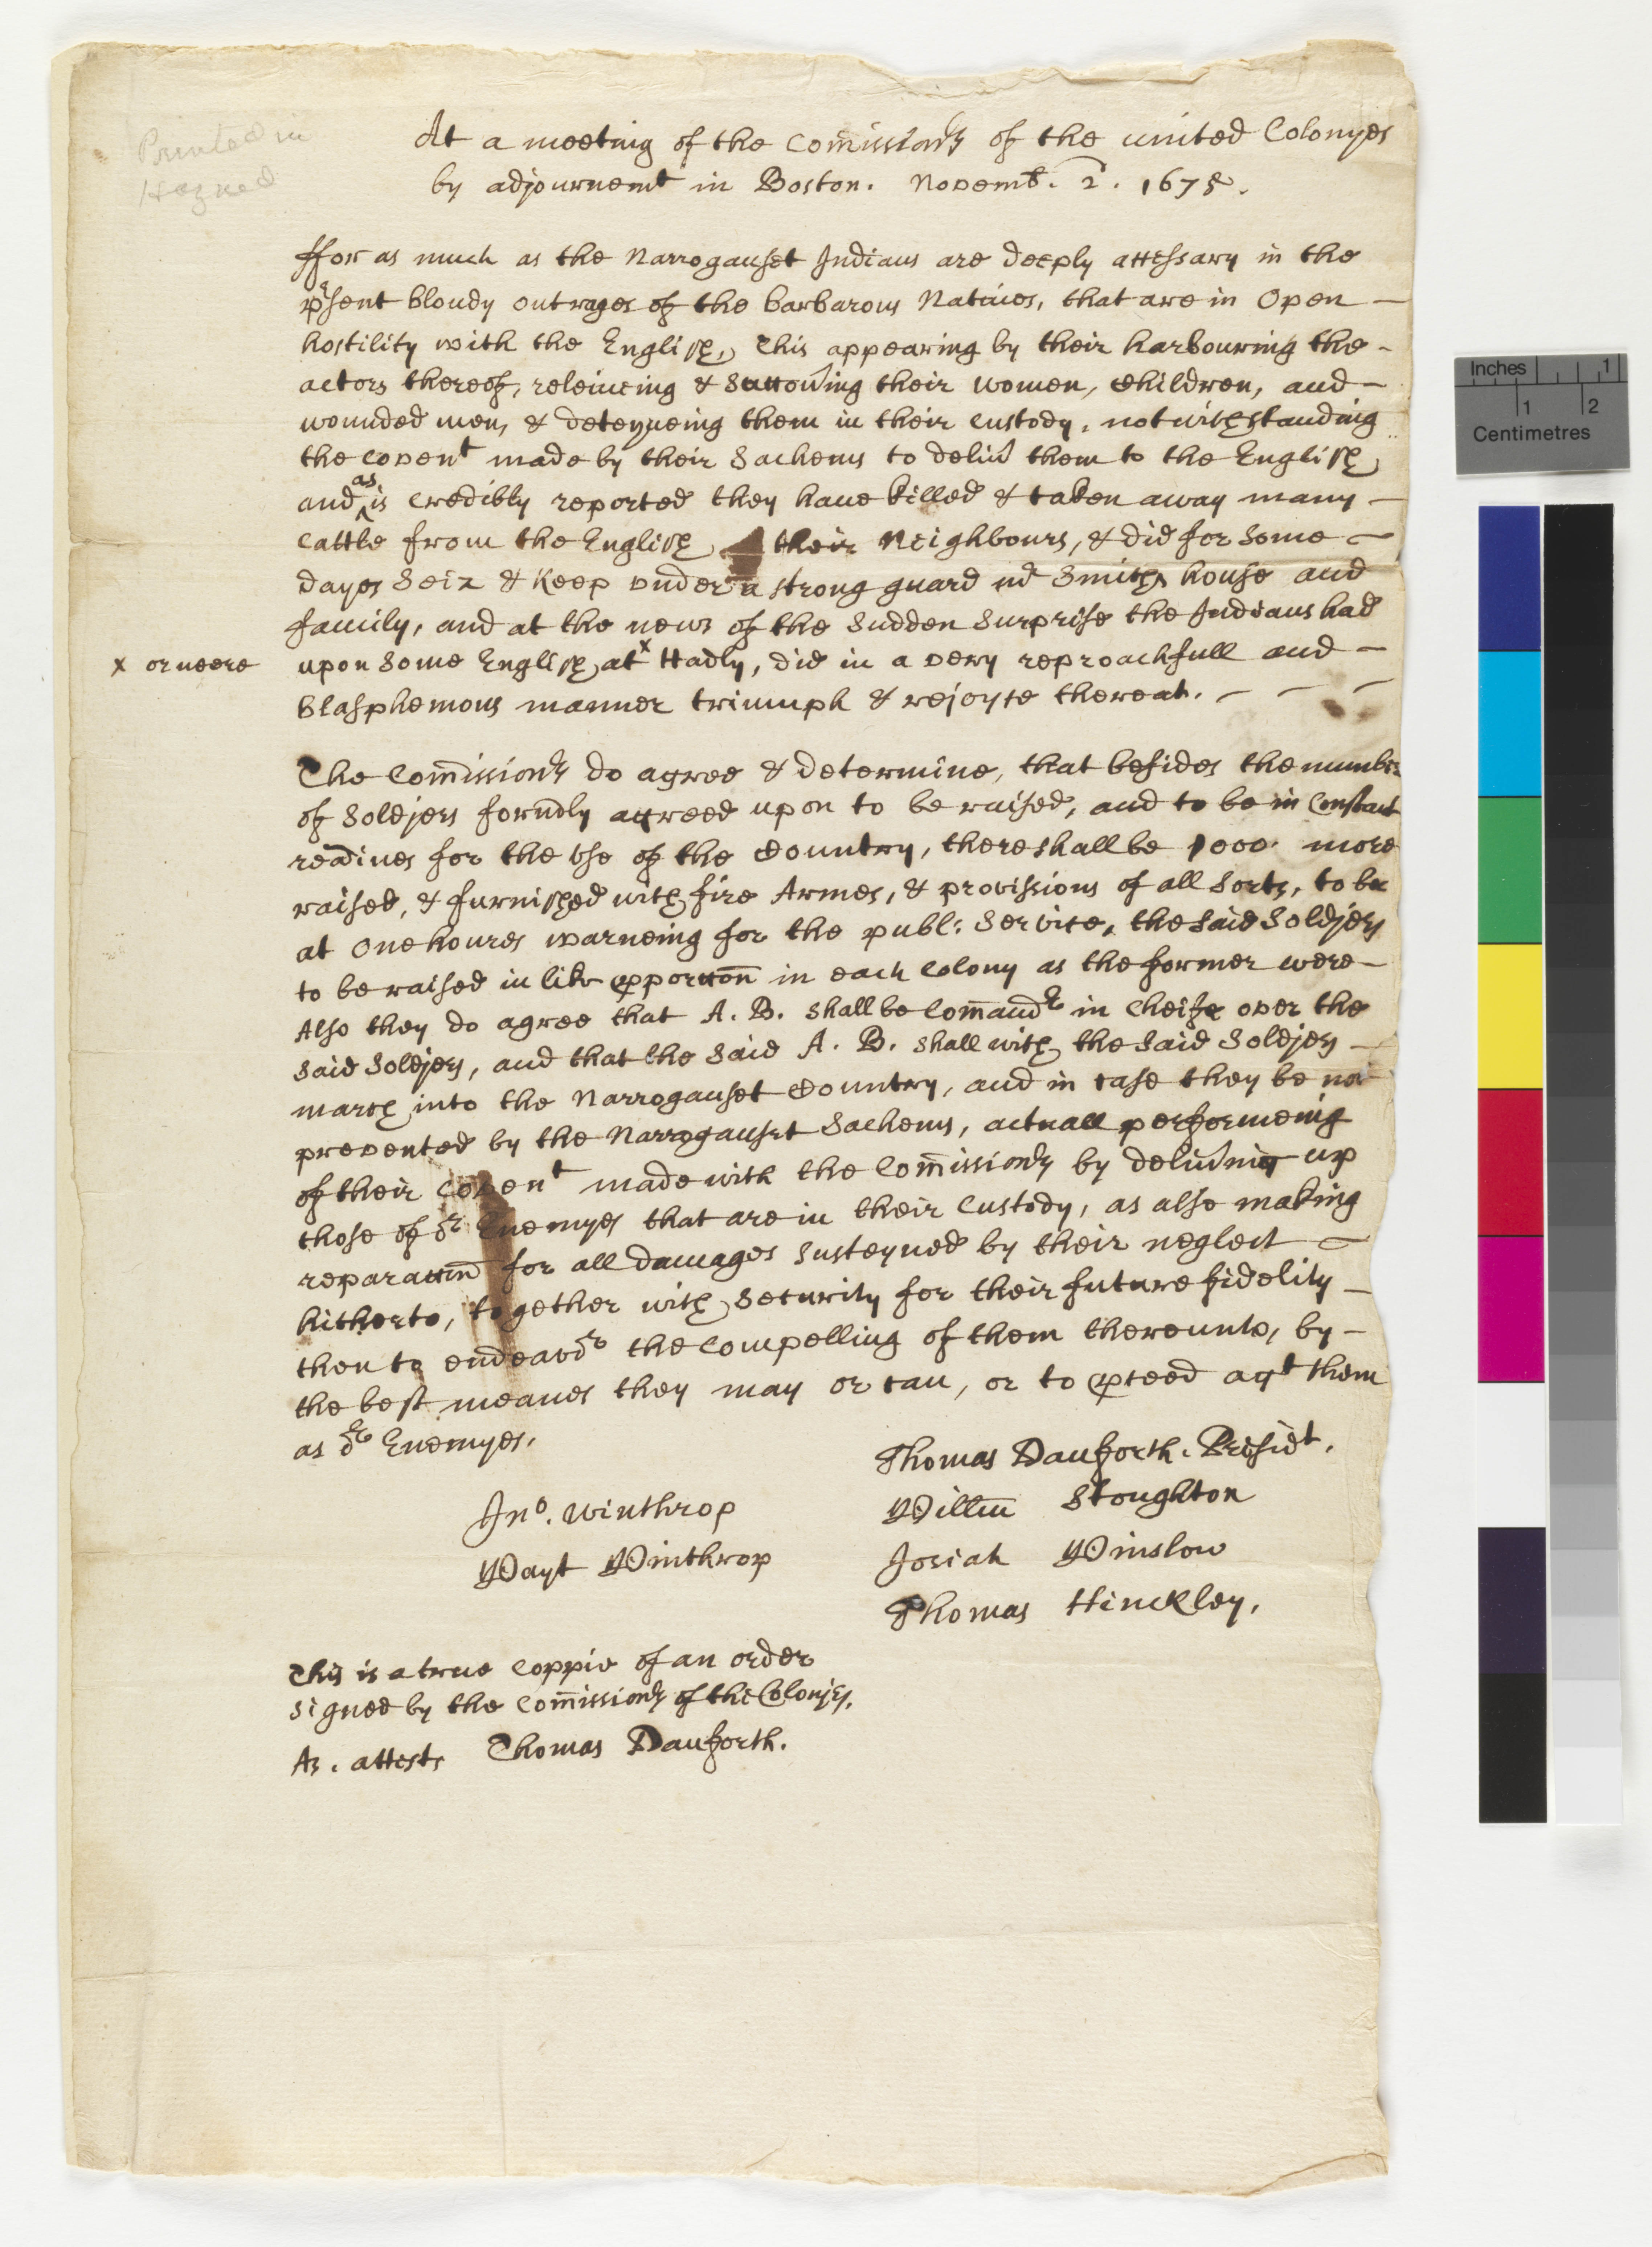 Printed in
Hazard
At a meeting of the Comissionrs of the united Colonyes
by adjournemt in Boston. Novembr. 2. 1675.
ffor as much as the Narroganset Indians are deeply accessary in the
psent bloudy outrages of the barbarous Natiues, that are in Open
hostility with the English, This appearing by their harbouring the
actors thereof, releiueing & Succouring their women, Children, and
wounded men, & deteyneing them in their custody, notwithstanding
the covent made by their Sachems to deliuer them to the English
and as is credibly reported they haue killed & taken away many
cattle from the English their Neighbours, & did for some
dayes Seiz & Keep vnder a strong guard mr Smiths house and
family, and at the news of the Sudden Surprise the Indians had
x or neere
upon some English at x Hadly, did in a very reproachfull and
blasphemous manner triumph & rejoyce thereat.
The Comissionrs do agree & determine, that besides the number
of Soldjers formerly agreed upon to be raised, and to be in Constant
readines for the vse of the Country, there shall be 1000 more
raised, & furnished with fire Armes, & provissions of all sorts, to be
at one houres warneing for the publ: Service, the said Soldjers
to be raised in like pportion in each Colony as the former were
Also they do agree that A. B. shall be Comandr in Cheife over the
said Soldjers, and that the said A. B. shall with the said Soldjers
march into the Narroganset Country, and in case they be not
prevented by the Narroganset Sachems, actuall performeing
of their covent made with the Comissionrs by deliuering up
those of or Enemyes that are in their Custody, as also making
reparation for all damages susteyned by their neglect
hitherto, together with Security for their future fidelity
then to endeavor the compelling of them thereunto, by
the best meanes they may or can, or to pceed agt them
as or Enemyes.
Thomas Danforth. Presidt.
Jno. Winthrop
Willm Stoughton
Wayt Winthrop
Josiah Winslow
Thomas Hinckley,
This is a true Coppie of an order
signed by the Comissionrs of the Colonjes,
As. attests Thomas Danforth.
Inches 1
1 2
Centimetres